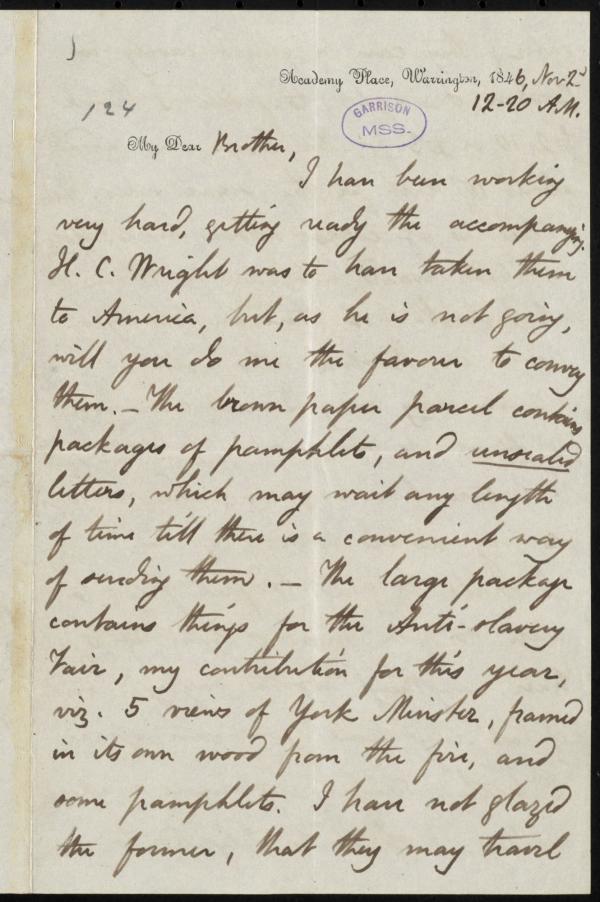 Academy Place, Warrington, 1846, Nov. 2d
12-20 A.M.
124
GARRISON
MSS.
My Dear Brother,
I have been working
very hard, getting ready the accompanying.
H. C. Wright was to have taken them
to America, but, as he is not going,
will you do me the favour to convey
them. — The brown paper parcel contains
packages of pamphlets, and unsealed
letters, which may wait any length
of time till there is a convenient way
of sending them. — The large package
contains things for the Anti-slavery
Fair, my contribution for this year,
viz. 5 views of York Minster, framed
in its own wood from the fire, and
some pamphlets. I have not glazed
the former, that they may travel